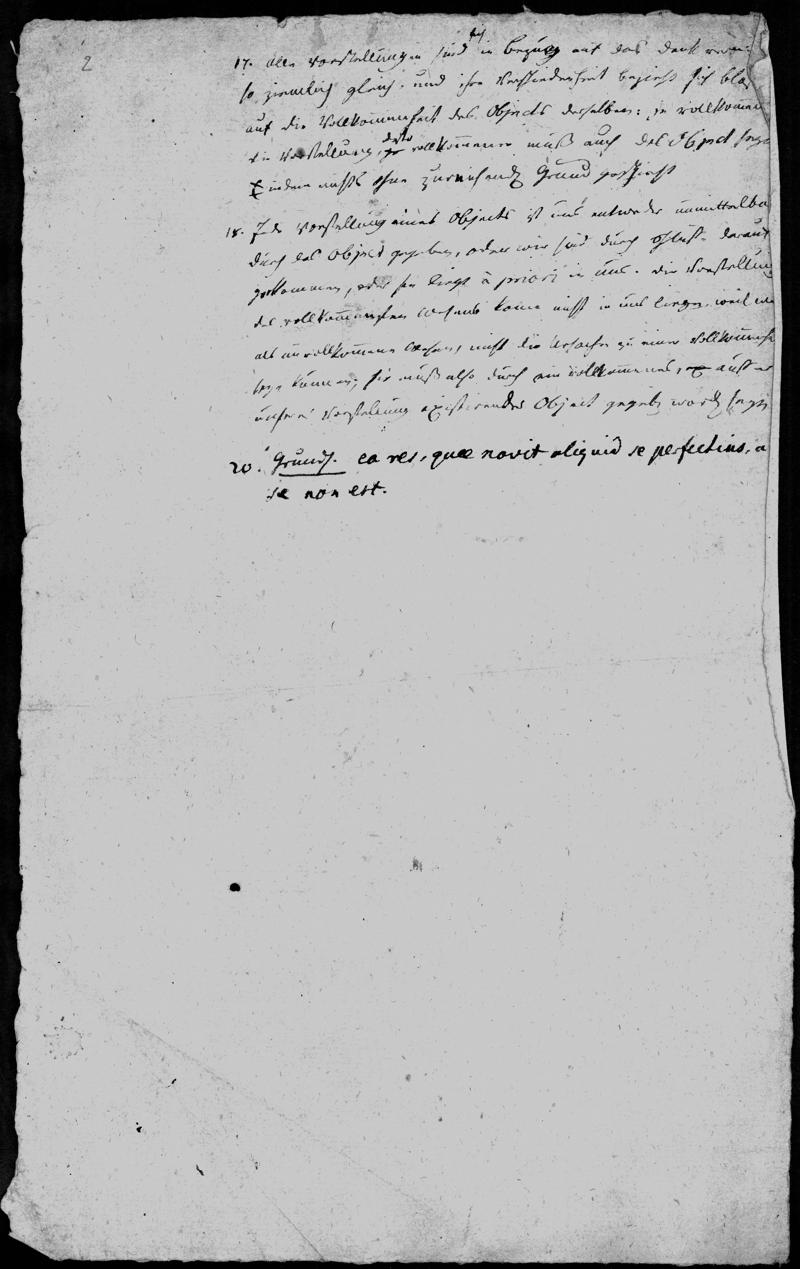 2
17. alle Vorstellungen sind in Bezug auf das Denkverm-
so ziemlich gleich. und ihre Verschiedenheit bezieht sich blos
auf die Vollkommenheit des Objects derselben: je vollkommen
die Vorstellung, desto vollkommener muß auch das Object seyn
indem nichts ohne zureichend Grund geschieht
18. Jede Vorstellung eines Objects ist uns entweder unmittelba
durch das Object gegeben, oder wir sind durch Schlüsse darauf
gekommen, oder sie liegt à priori in uns. die Vorstellung
des vollkommensten Wesens kann nicht in uns liegen, weil wir
als unvollkommene Wesen, nicht die Ursache zu einer Vollkommen
seyn können; sie muß also durch ein vollkommenes, außer
unserer Vorstellung existirendes Object gegeben worden seyn
20. Grunds. ea res, quae novit aliquid se perfectius, a
se non est.